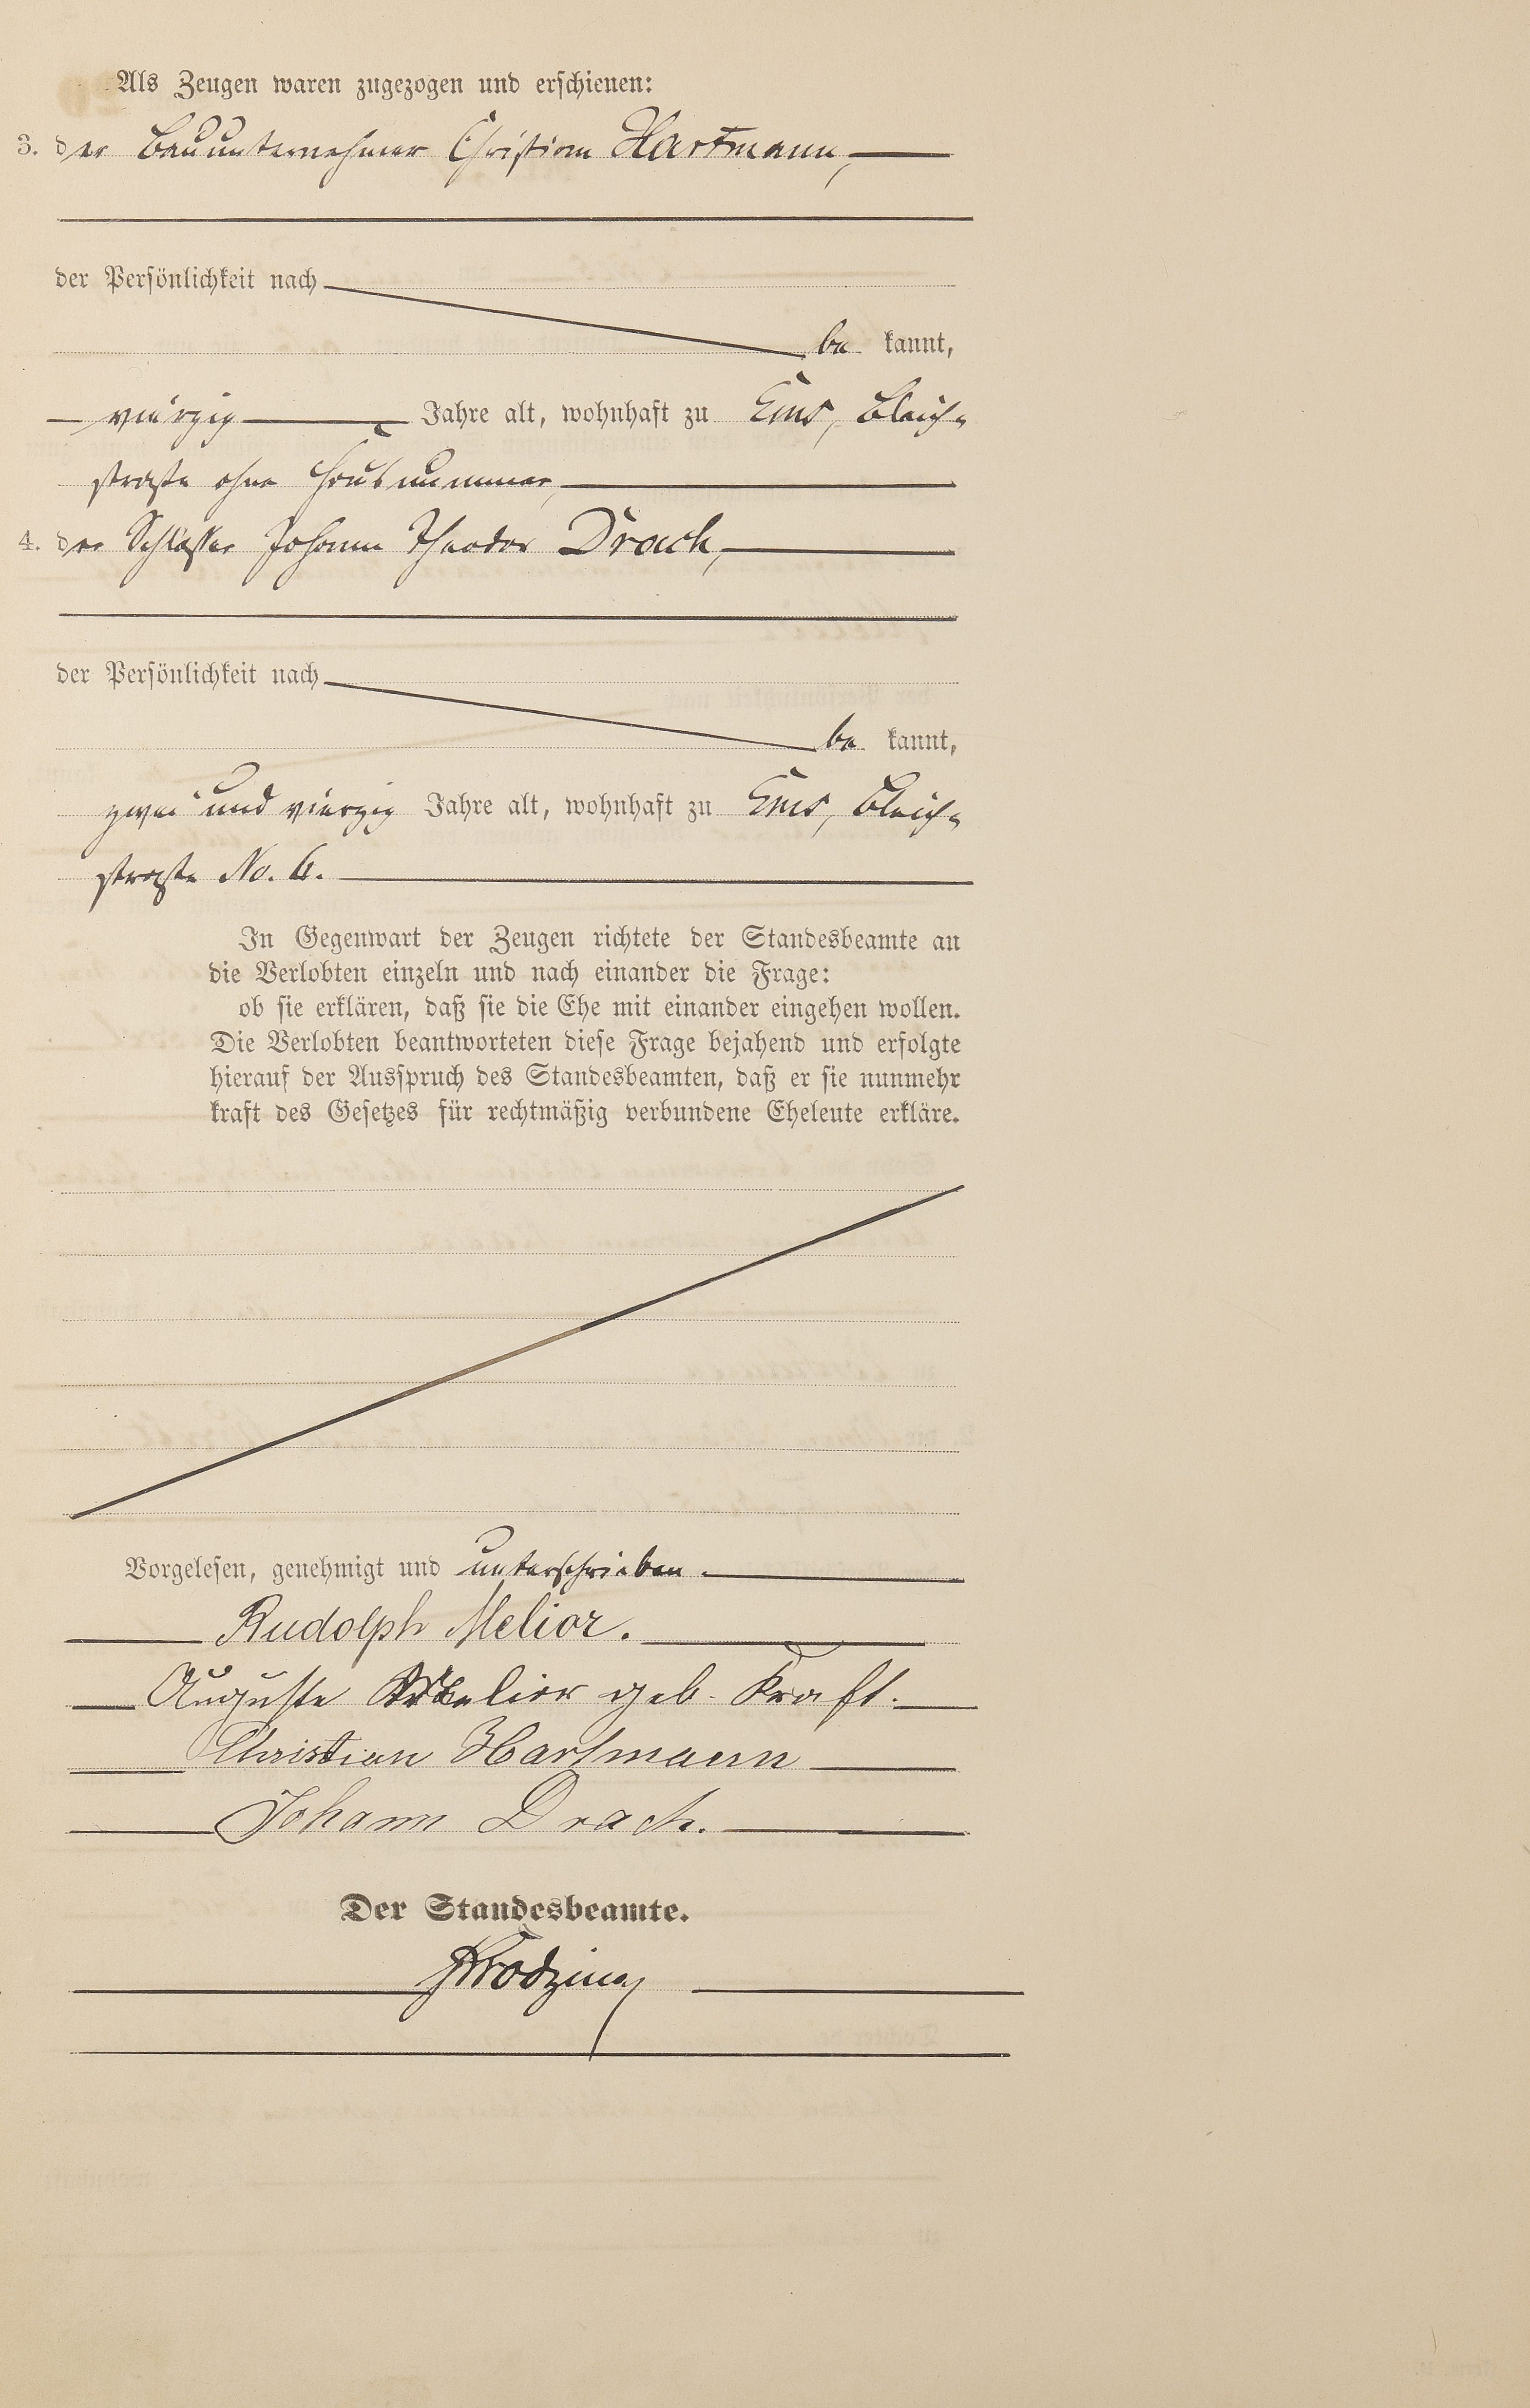 Als Zeugen waren zugezogen und erschienen:
3. der Bauunternehmer Christian Hartmann,
der Persönlichkeit nach
be kannt,
vierzig Jahre alt, wohnhaft zu Ems, Bleich-
straße ohne Hausnummer,
4. der Schlosser Johann Theodor Drach,
der Persönlichkeit nach
be kannt,
zwei und vierzig Jahre alt, wohnhaft zu Ems, Bleich-
straße No. 6.
In Gegenwart der Zeugen richtete der Standesbeamte an
die Verlobten einzeln und nach einander die Frage:
ob sie erklären, daß sie die Ehe mit einander eingehen wollen.
Die Verlobten beantworteten diese Frage bejahend und erfolgte
hierauf der Ausspruch des Standesbeamten, daß er sie nunmehr
kraft des Gesetzes für rechtmäßig verbundene Eheleute erkläre.
Vorgelesen, genehmigt und unterschrieben.
Rudolph Melior.
Auguste Melior geb. Kraft.
Christian Hartmann
Johann Drach.
Der Standesbeamte.